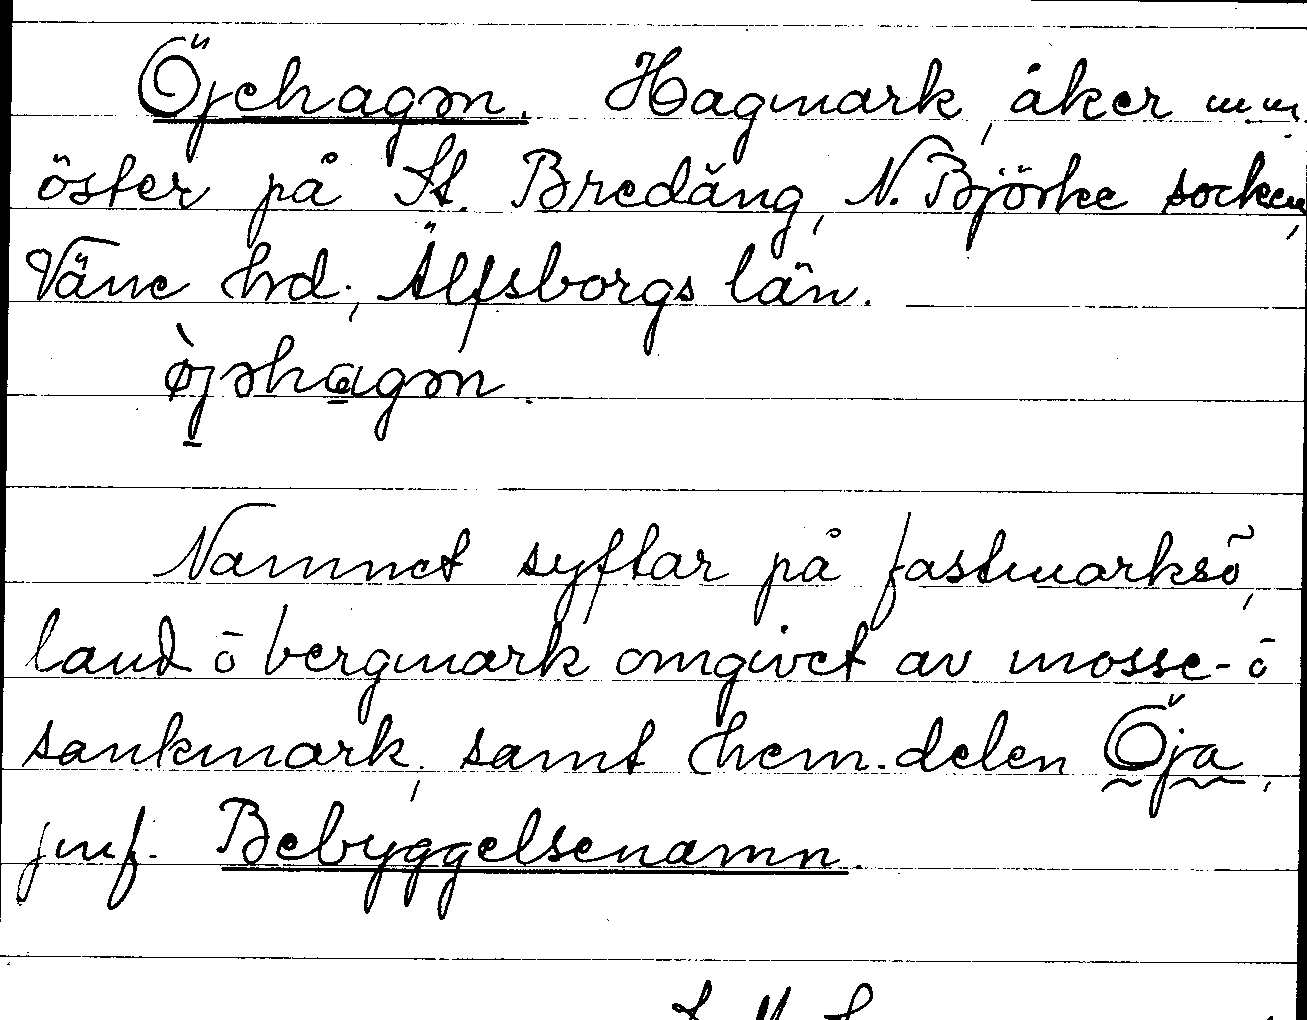 Öjehagən. Hagmark, åker m.m.
öster på St. Bredäng, N. Björke socken,
Väne hrd., Älfsborgs län.
ø̀jəhagən.
Namnet syftar på fastmarksö,
land ō bergmark omgivet av mosse- ō
sankmark, samt hem.delen Öja,
jmf. Bebyggelsenamn.